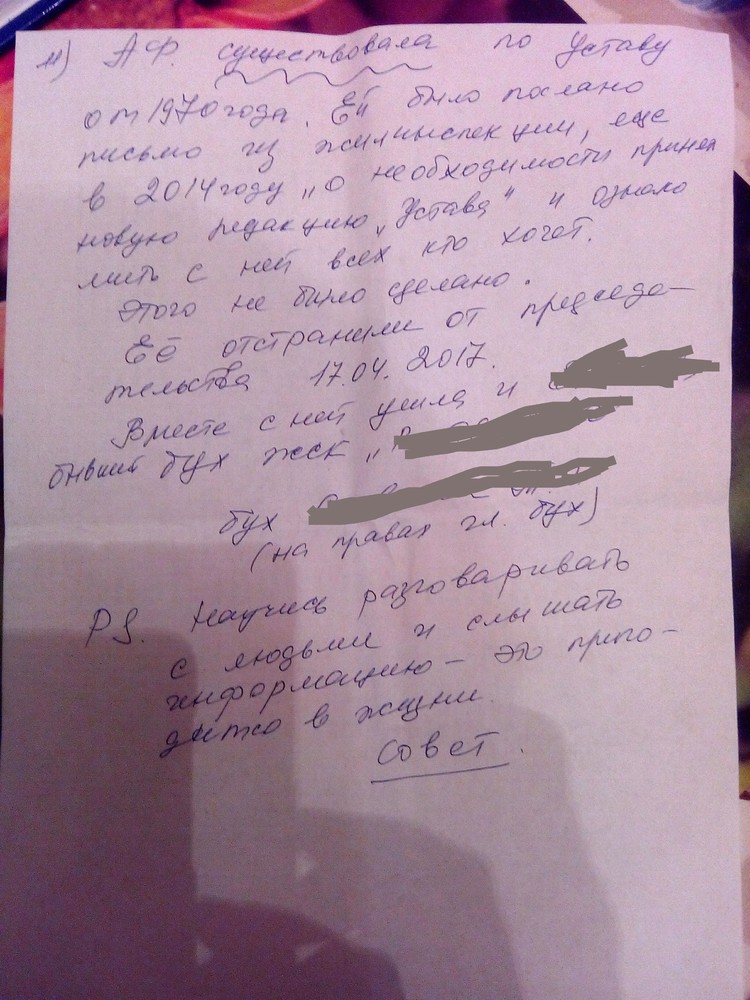 11) А.Ф. существовала по Уставу
от 1970 года. Ей было послано
письмо из жилинспекции, еще
в 2014 году „О необходимости принят
новую редакцию „Устава" и ознако
мить с ней всех кто хочет.
Этого не было сделано.
Её отстранили от председа-
тельства 17.04. 2017.
Вместе с ней ушла и
бывший бух жск „
бух
(на правах гл. бух)
PS. Научись разговаривать
с людьми и слышать
информацию - это приго-
дится в жизни.
Совет.